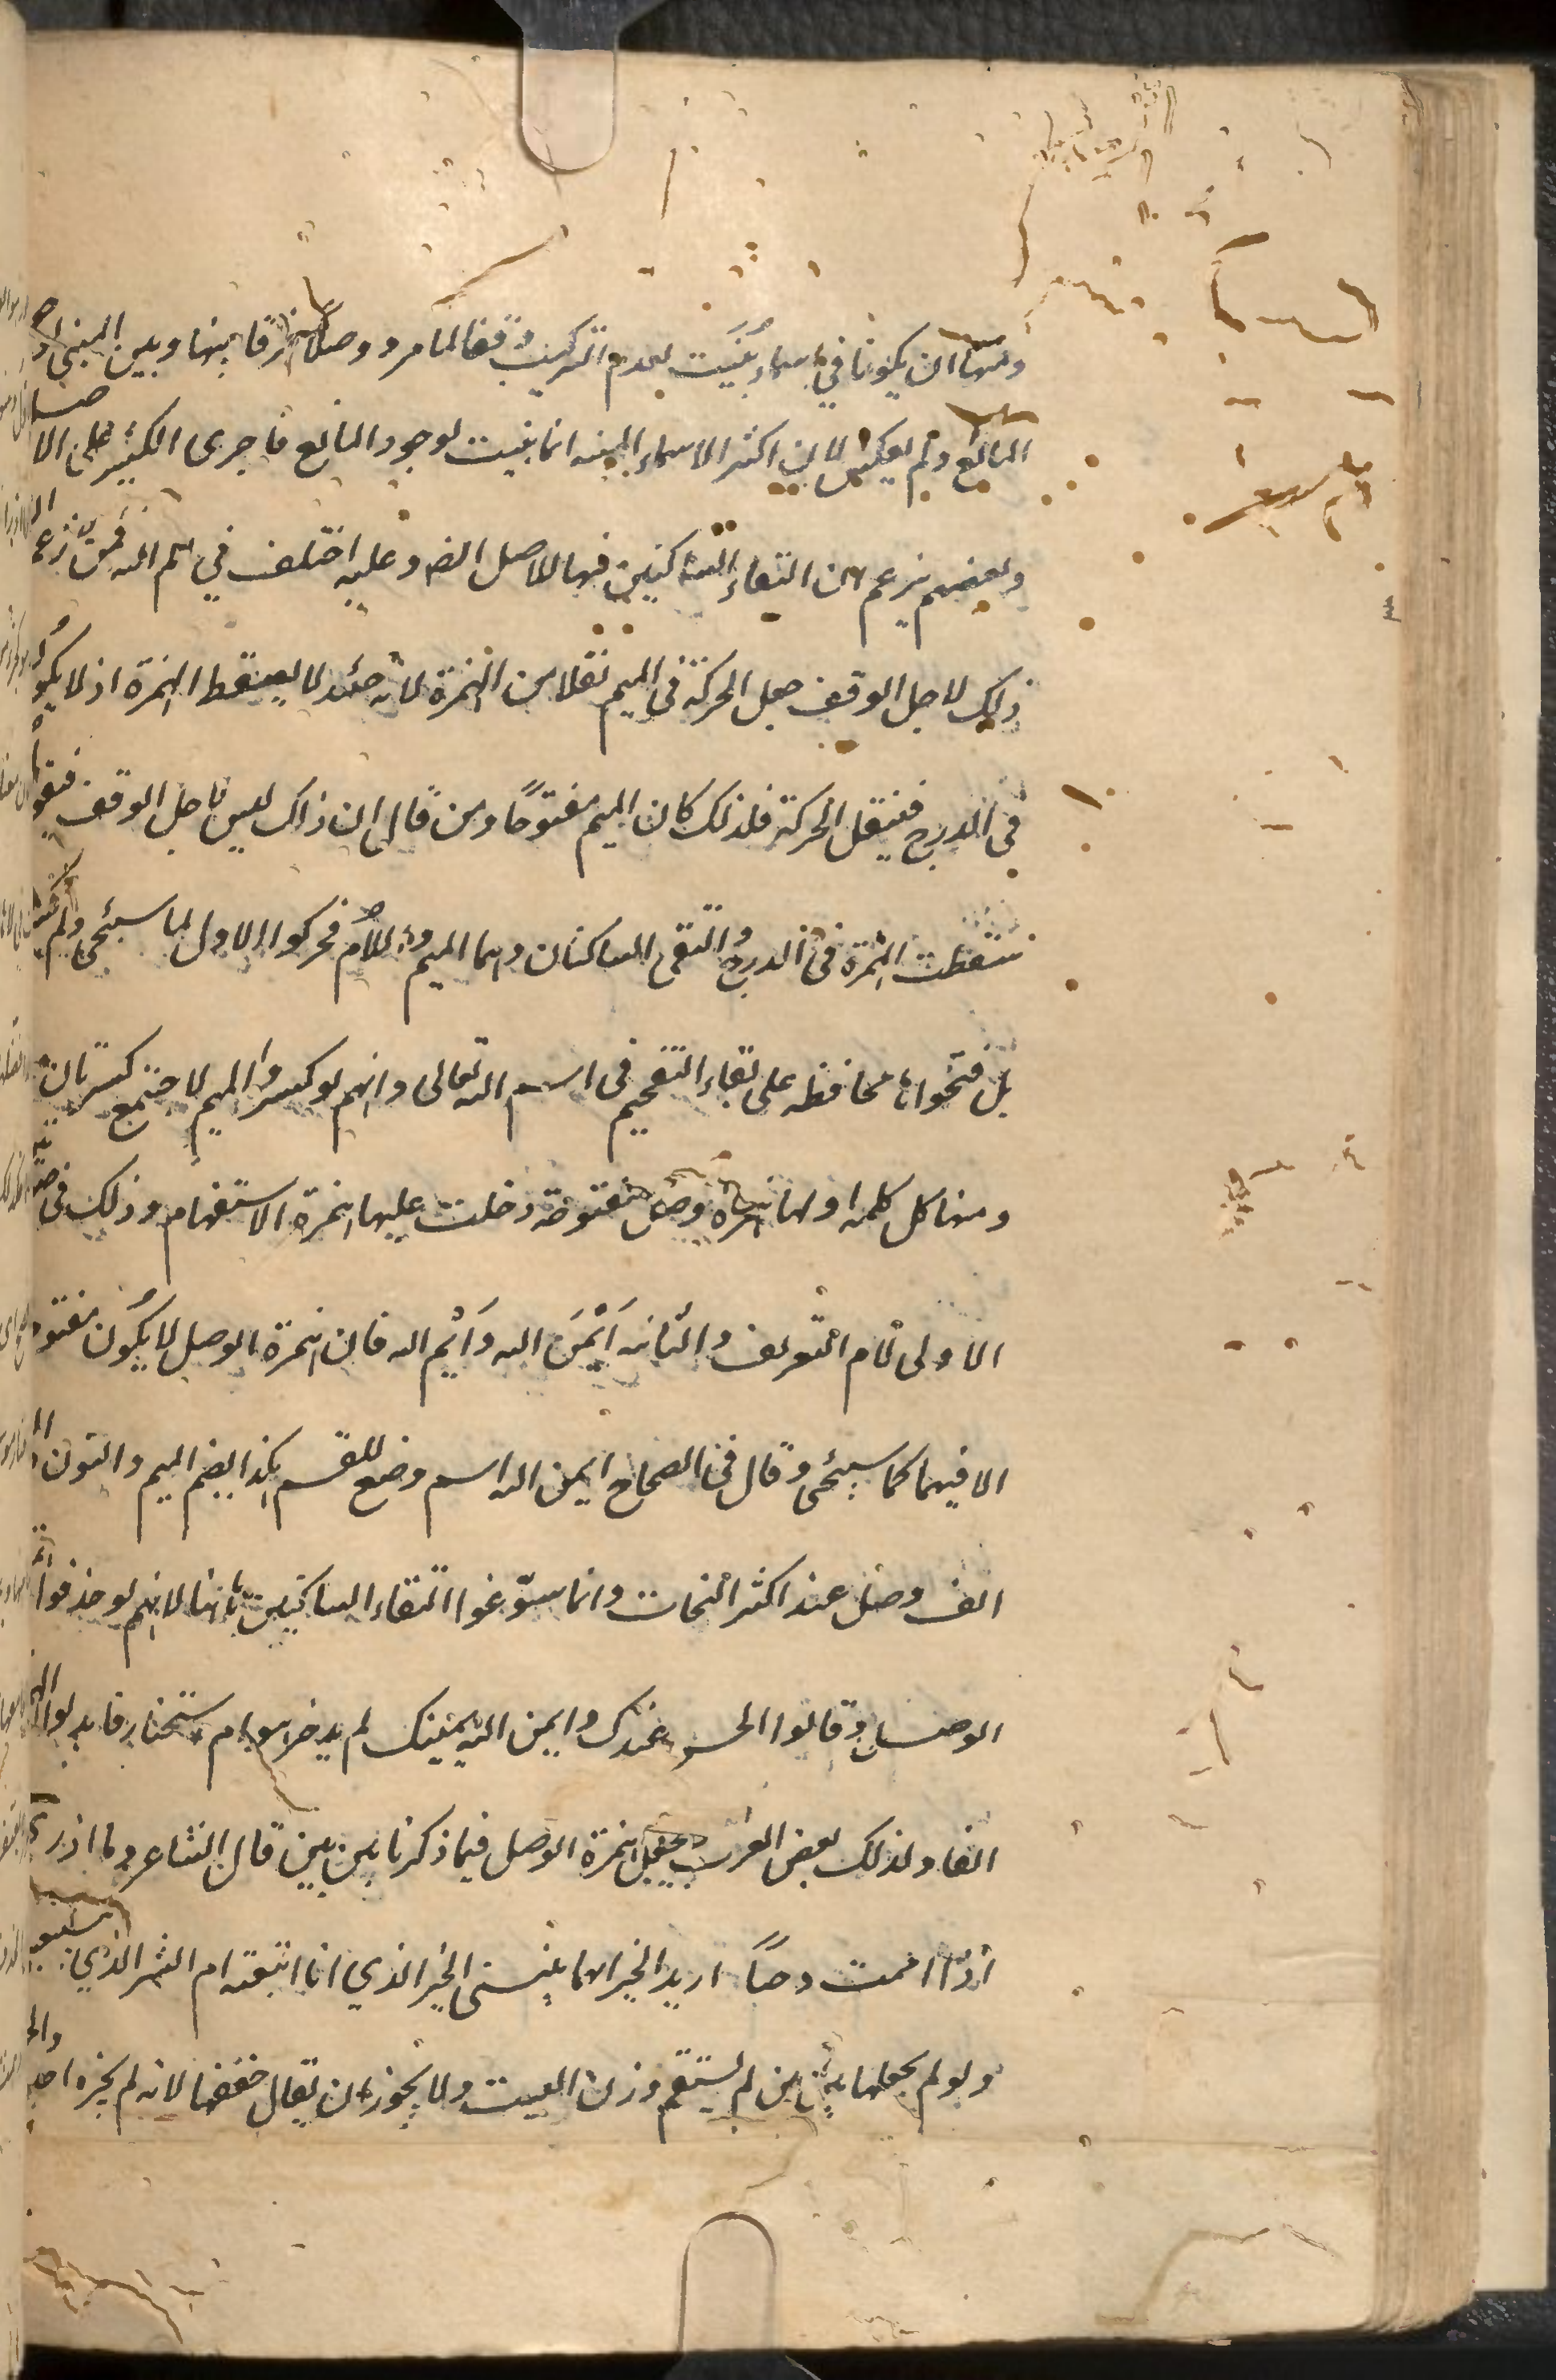 ومنها ان يكونا في اسماء بُنيَت لعدم التركيب وقفا لما مر ووصلا فرقا بينها وبين المبنى لوجود
المانع ولم يعكس لان اكثر الاسماء المبنيه انما بنيت لوجود المانع فاجرى الكثير على الاصل
وبعضهم يزعم ان التقاء الساكنين فيها للاصل الضا وعليه اختلف في الم الله فمن زعم ان
ذلك لاجل الوقف جعل الحركة فى الميم نقلا من الهمزة لانه حينئذ لا يسقط الهمزة اذ لا يكون
فى الدرج فينقل الحركة فلذلك كان الميم مفتوحًا ومن قال ان ذاك ليس لاجل الوقف فيقول
سقطت الهمزة فى الدرج والتقى الساكنان وهما الميم واللام فحركوا الاول لما سيئجى ولم يكسروا
بل فتحوا محافظه على بقاء التفخيم فى اسم الله تعالى وانهم لو كسروا الميم لاجتمع كسرتان
ومنها كل كلمه اولها همزة وصل مفتوحة دخلت عليها همزة الاستفهام وذلك فى
الاولى لام التعريف والثانيه اَيْمَن الله وَاَيْم الله فان همزة الوصل لا يكون مفتوحة
الا فيهما كما سيئجى وقال فى الصحاح ايمن الله اسم وضع للقسم هكذا بضم الميم والنون
الف وصل عند اكثر النحات وانما سوّغوا التقاء الساكنين ههنا لانهم لو حذفوا
الوصل وقالوا الحسن عندك وايمن الله يمينك لم يدر استخبار هو ام اخبار فابدلوا
الفا ولذلك بعض العرب يجعل همزة الوصل فيما ذكرنا بين بين قال الشاعر وما ادرى
اذا اممت وجهًا اريد الخير ايهما يلينى االخير الذي انا ابتغيه ام الشر الذي
ولو لم يجعلها بين بين لم يستقم وزن البيت ولا يجوز ان يقال حققها لانه لم يجزه احد